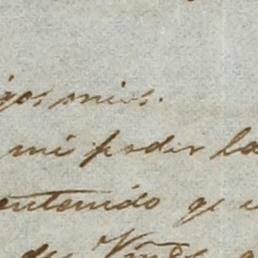 igos mios.
mi poder la
ontenido qe
de Vmds.